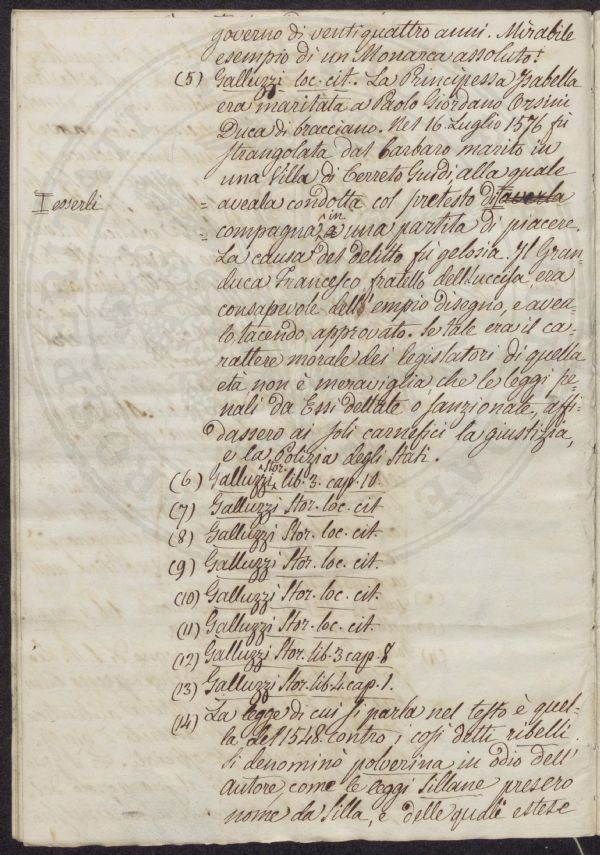 governo di ventiquattro anni. Mirabile
esempio di un Monarca assoluto!
(5) Galluzzi loc. cit. La Principessa Isabella
era maritata a Paolo Giordano Orsini
Duca di bracciano. Nel 16. Luglio 1576 fù
strangolata dal barbaro marito in
una Villa di Cerreto Guidi, alla quale
Tesserli = aveala condotta col pretesto di averla
= compagna in a una partita di piacere.
La causa del delitto fù gelosia. Il Gran-
duca Francesco, fratello dell'uccisa era
consapevole dell'empio disegno, e avea-
lo tacendo approvato. Se tale era il ca-
rattere morale dei legislatori di quella
età non è meraviglia, che le leggi pe-
nali da Essi dettate o sanzionate, affi-
dassero ai soli carnefici la giustizia,
e la Polizia degli Stati.
(6) Galluzzi Stor. lib. 3. cap. 10.
(7) Galluzzi Stor. loc. cit.
(8) Galluzzi Stor. loc. cit.
(9) Galluzzi Stor. loc. cit.
(10) Galluzzi Stor. loc. cit.
(11) Galluzzi Stor. loc. cit.
(12) Galluzzi Stor. lib. 3 cap. 8
(13) Galluzzi Stor. lib. 4. cap. 1.
(14) La legge di cui si parla nel testo è quel-
la del 1548. contro i così detti ribelli.
Si denominò polverina in odio dell'
autore, come le leggi Sillane presero
nome da Silla, e delle quali estese